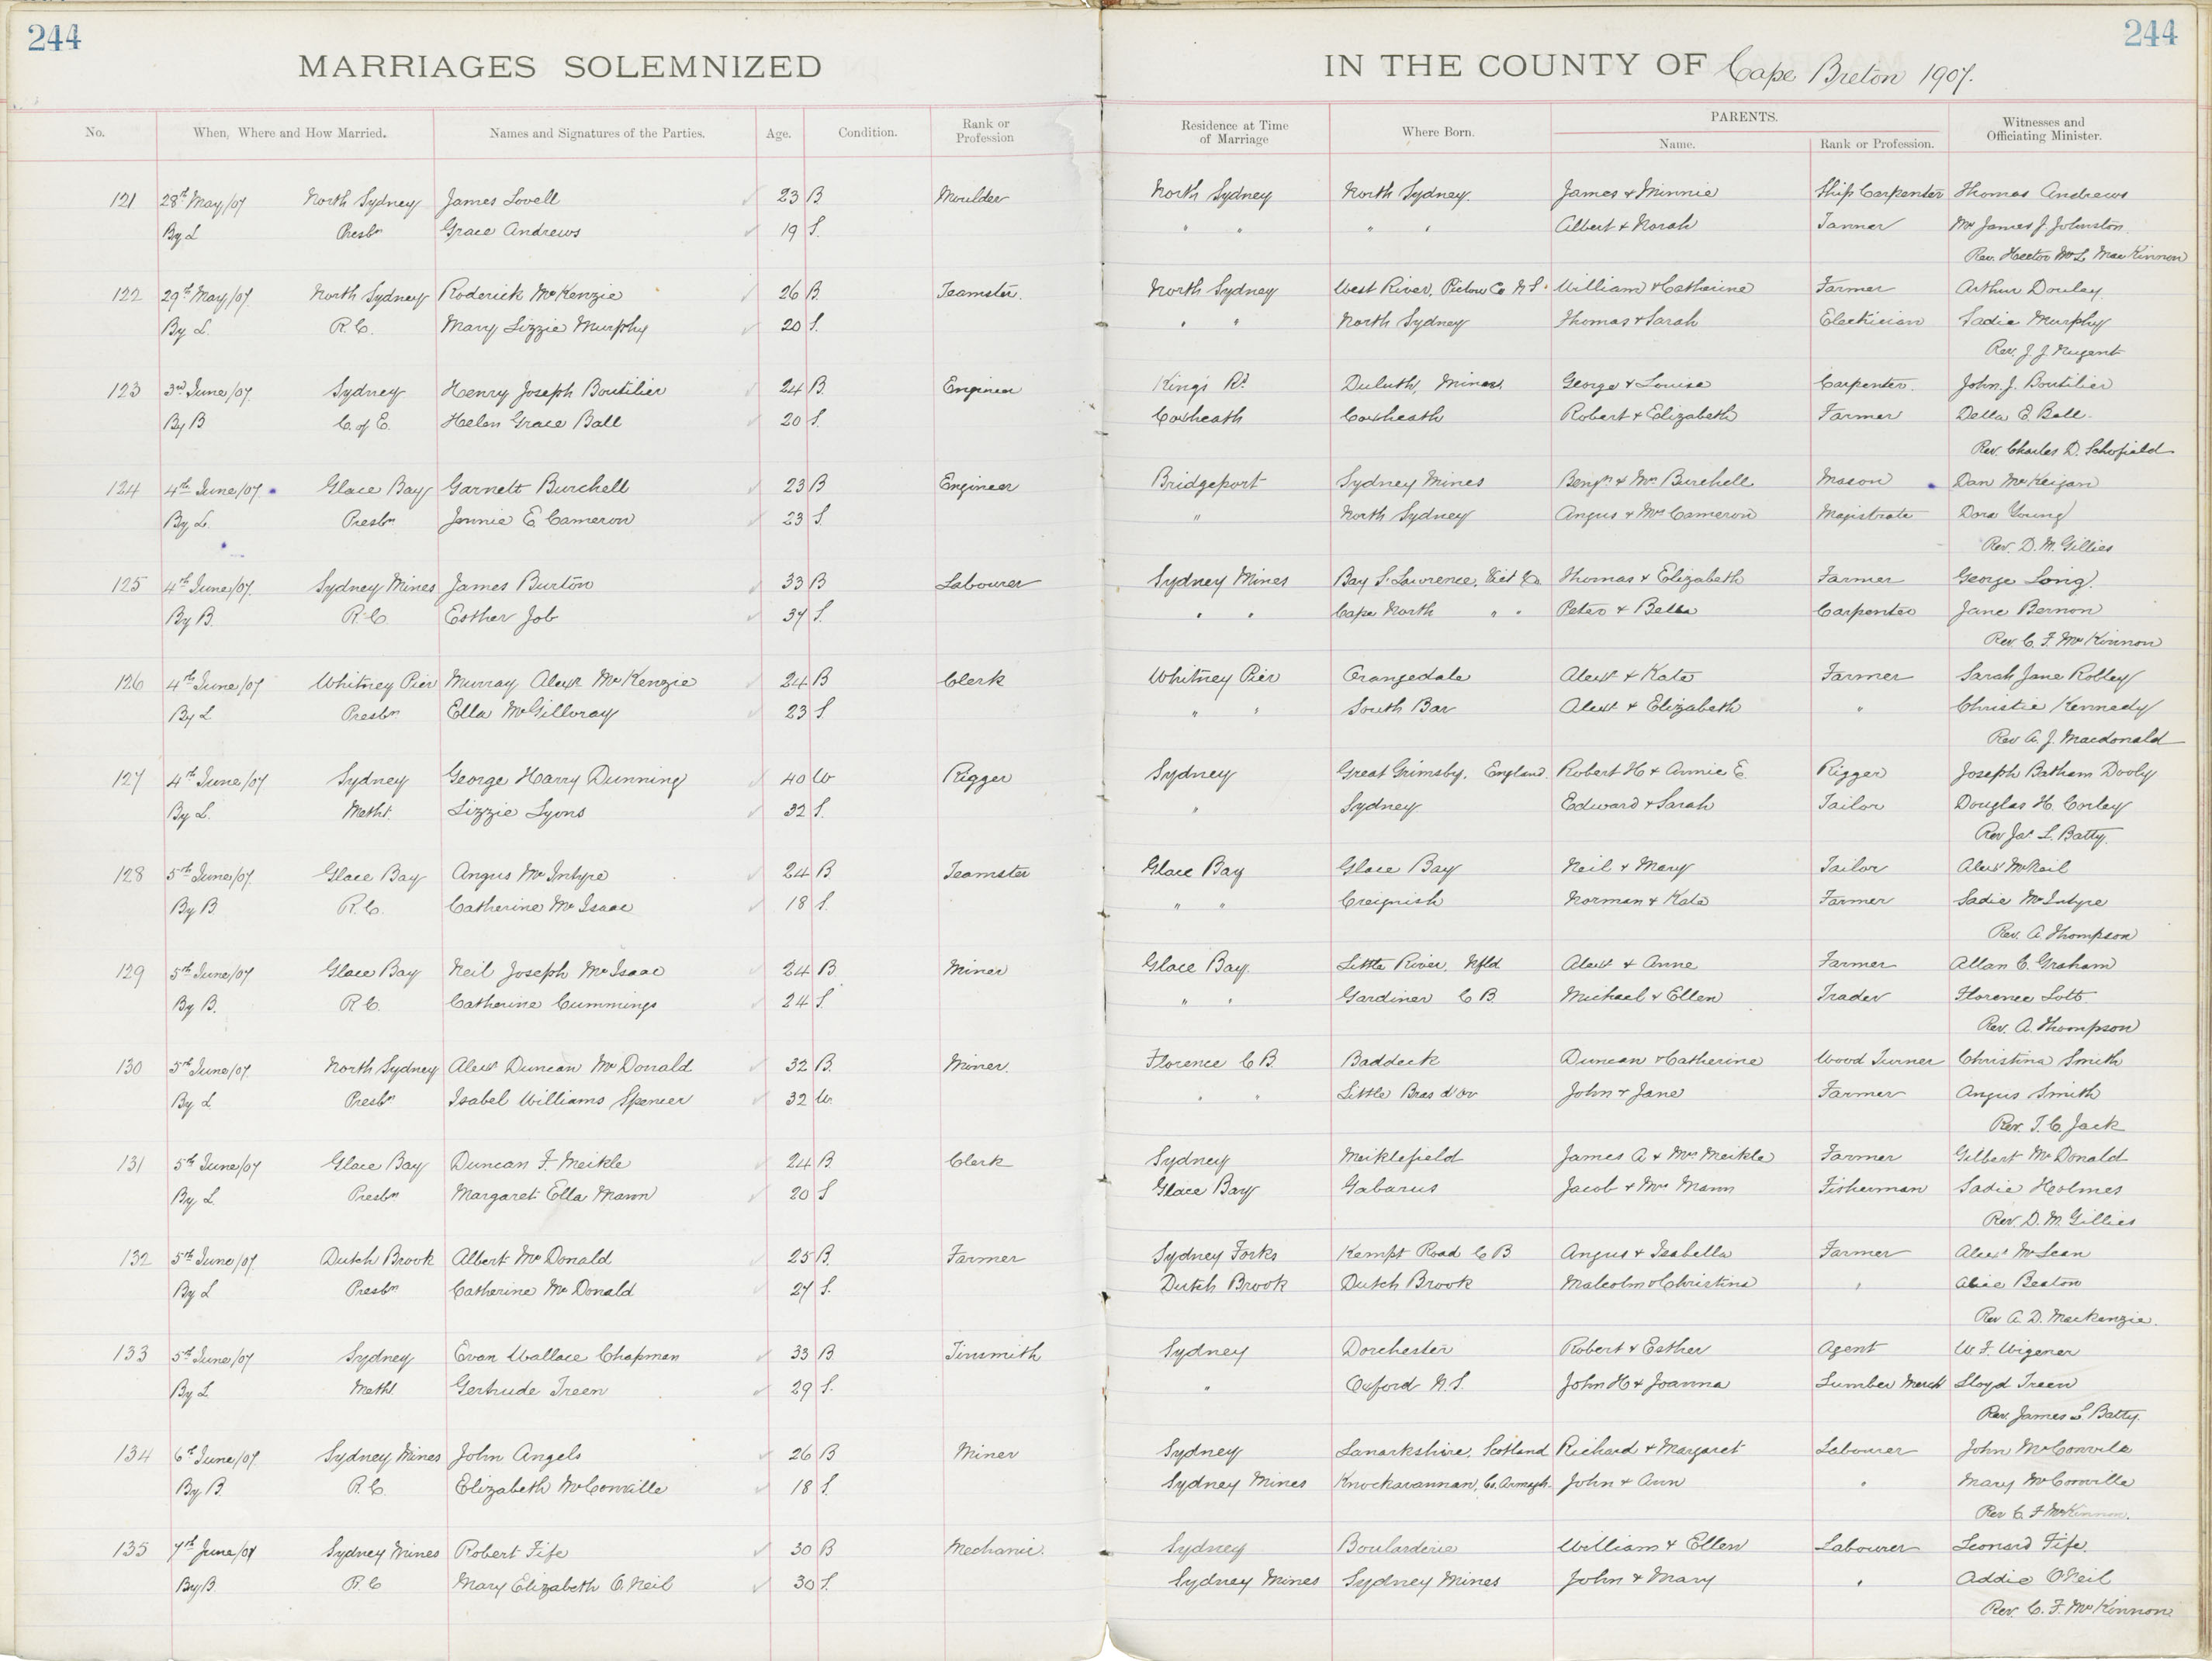 244
244
MARRIAGES SOLEMNIZED IN THE COUNTY OF Cape Breton 1907.
No. When, Where and How Married. Names and Signatures of the Parties. Age. Condition. Rank or Profession Residence at Time of Marriage Where Born. PARENTS. Name. Rank or Profession. Witnesses and Officiating Minister.
121 28th May/07 North Sydney James Lovell 23 B Moulder North Sydney North Sydney. James & Minnie Ship Carpenter Thomas Andrews
By L Presbn Grace Andrews 19 S. " " " " Albert & Norah Tanner Mrs James J. Johnston
Rev. Hector McL MacKinnon
122 29th May/07. North Sydney Roderick McKenzie 26 B. Teamster. North Sydney West River, Pictou Co N.S. William & Catherine Farmer Arthur Douley
By L. R.C. Mary Lizzie Murphy 20 S. " " North Sydney Thomas & Sarah Electrician Sadie Murphy
Rev. J. J. Nugent
123 3rd June/07. Sydney Henry Joseph Boutilier 24 B. Engineer King's Rd Duluth, Minn. George & Louise Carpenter. John. J. Boutilier
By B C. of E. Helen Grace Ball 20 S. Coxheath Coxheath Robert & Elizabeth Farmer Della E. Ball.
Rev. Charles D. Schofield
124 4th June/07 Glace Bay Garnett Burchell 23 B Engineer Bridgeport Sydney Mines Benjn & Mrs Burchell Mason Dan McKeigan
By L. Presbn Jennie E Cameron 23 S. " North Sydney Angus & Mrs Cameron Magistrate Dora Young
Rev. D. M. Gillies
125 4th June/07. Sydney Mines James Burton 33 B Labourer Sydney Mines Bay S. Lawrence, Vict Co Thomas & Elizabeth Farmer George Long.
By B. R.C. Esther Job 37 S. " " Cape North " " Peter & Bella Carpenter Jane Bernon
Rev. C. F. McKinnon
126 4th June/07 Whitney Pier Murray Alexr McKenzie 24 B Clerk Whitney Pier Orangedale Alexr & Kate Farmer Sarah Jane Robley
By L Presbn Ella McGillvray 23 S. " " South Bar Alexr & Elizabeth " Christie Kennedy
Rev A. J. Macdonald
127 4th June/07 Sydney George Harry Dunning 40 W Rigger Sydney Great Grimsby, England. Robert H & Annie E. Rigger Joseph Batham Dooly
By L. Metht. Lizzie Lyons 32 S. " Sydney Edward & Sarah Tailor Douglas H. Corley
Rev Jas L. Batty.
128 5th June/07. Glace Bay Angus McIntyre 24 B Teamster Glace Bay Glace Bay Neil & Mary Tailor Alexr McNeil
By B R.C. Catherine McIsaac 18 S. " " Creignish Norman & Kate Farmer Sadie McIntyre
Rev. A. Thompson
129 5th June/07 Glace Bay Neil Joseph McIsaac 24 B Miner Glace Bay. Little River, Nfld Alexr & Anne Farmer Allan C. Graham
By B. R.C. Catherine Cummings 24 S. " " Gardiner C B. Michael & Ellen Trader Florence Lott.
Rev. A. Thompson
130 5th June/07. North Sydney Alexr Duncan McDonald 32 B. Miner. Florence C B. Baddeck Duncan & Catherine Wood Turner Christina Smith
By L Presbn Isabel Williams Spencer 32 W. " " Little Bras d'or John & Jane Farmer Angus Smith
Rev. T. C. Jack
131 5th June/07 Glace Bay Duncan F. Meikle 24 B Clerk Sydney Meiklefield James A & Mrs Meikle Farmer Gilbert McDonald
By L. Presbn Margaret Ella Mann 20 S Glace Bay Gabarus Jacob & Mrs Mann Fisherman Sadie Holmes
Rev. D. M. Gillies
132 5th June/07 Dutch Brook Albert McDonald 25 B. Farmer Sydney Forks Kempt Road C B Angus & Isabella Farmer Alexr McLean
By L Presbn Catherine McDonald 27 S. Dutch Brook Dutch Brook Malcolm & Christina " Beaton
Rev A. D. Mackenzie.
133 5th June/07 Sydney Evan Wallace Chapman 33 B Tinsmith Sydney Dorchester Robert & Esther Agent W. F. Wigener
By L Metht. Gertrude Treen 29 S. " Oxford N.S. John H & Joanna Lumber Mercht Lloyd Treen
Rev. James L. Batty.
134 6th June/07. Sydney Mines John Angels 26 B Miner Sydney Lanarkshire, Scotland Richard & Margaret Labourer John McConvile
By B. R.C Elizabeth McConville 18 S. Sydney Mines Knockavannan, Co. Armagh. John & Ann " Mary McConville
Rev C. F McKinnon.
135 7th June/07 Sydney Mines Robert Fife 30 B Mechanic. Sydney Boularderie William & Ellen Labourer Leonard Fife
By B. R.C Mary Elizabeth O.Neil 30 S. Sydney Mines Sydney Mines John & Mary " Addie O'Neil
Rev. C. F. McKinnon